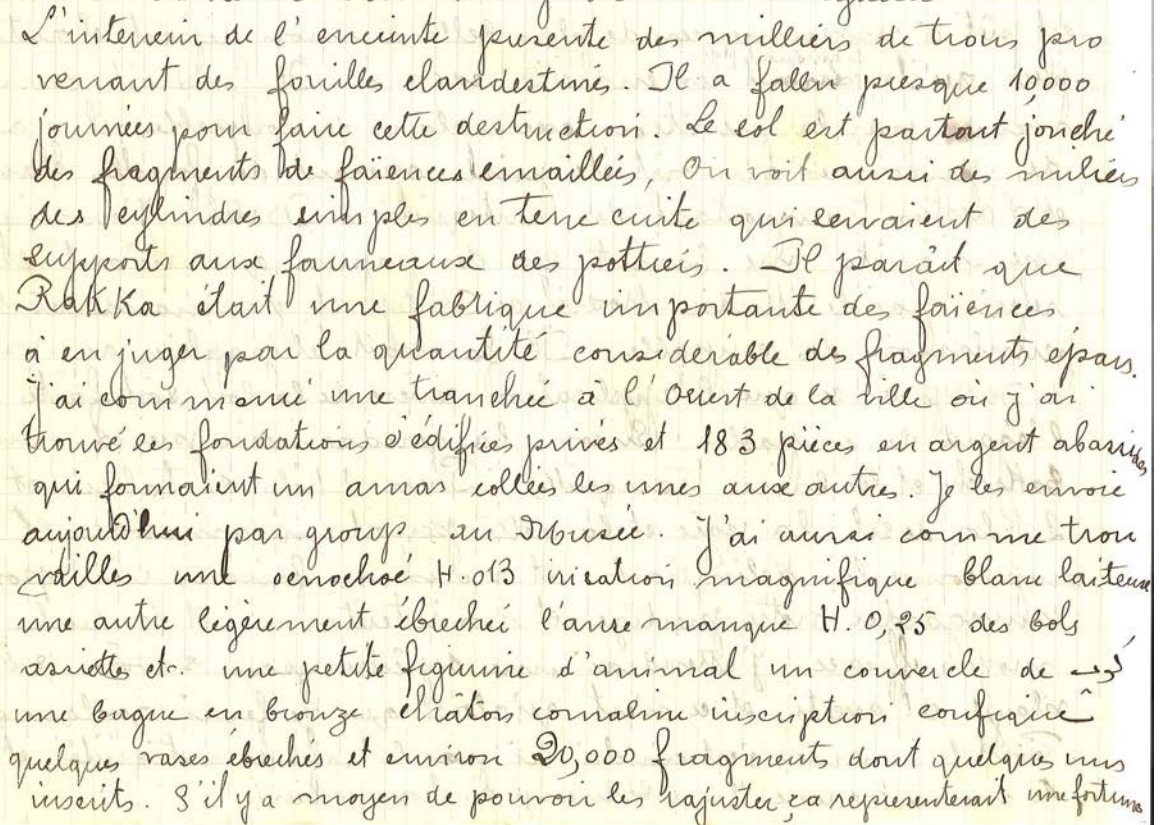 L'interieur de l'enceinte presente des milliers de trous pro
venant des fouilles clandestines. Il a fallu presque 10,000
journées pour faire cette destruction. Le sol est partout jonché
des fragments de faïences emaillées, On voit aussi des miliers
des cylindres simples en terre cuite qui servaient des
supports aux fourneaux des pottiers. Il paraît que
Rakka était une fabrique importante des faiences
à en juger par la quantité considerable des fragments épars.
J'ai commencé une tranchée à l'Ouest de la ville où j'ai
trouvé les fondations d'édifices privés et 183 pièces en argent abassides
qui formaient un amas collées les unes aux autres. Je les envoie
aujourd'hui par group au Musée. J'ai aussi comme trou
vailles une oenochoé H.013 irisation magnifique blanc laiteuse
une autre légèrement ébrechée l'anse manque H. 0,25 des bols
assiettes etc. une petite figurine d'animal un couvercle de
une bague en bronze châton cornaline inscription coufique
quelques vases ébrechés et environ 20,000 fragments dont quelques uns
inscrits. S'il y a moyen de pouvoir les rajuster, ça representerait une fortune